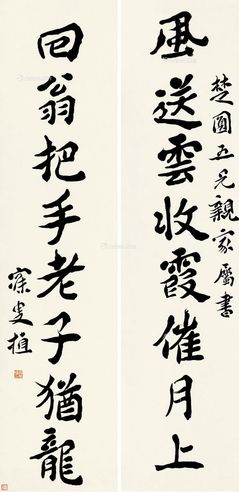 楚園五兄親家屬書
風送雲收霞催月上
回翁把手老子猶龍
寐叟植